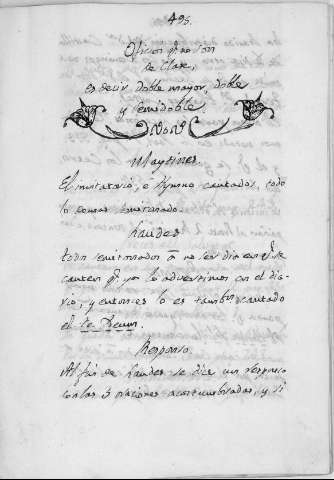 495.
Oficios q.e no son
de Clase,
es decir doble mayor, doble
y semidoble.
Maytines.
El invitatorio, e Hymno cantados, todo
lo demas semitonado.
Laudes
todas semitonadas a no ser dia en q.e se
canten q.e ya lo advertimos en el dia-
rio, y entonces lo es tambn cantado
el Te Deum.
Responso.
Al fin de Laudes se dice un responso
con las 3 oraciones acostumbradas, y si